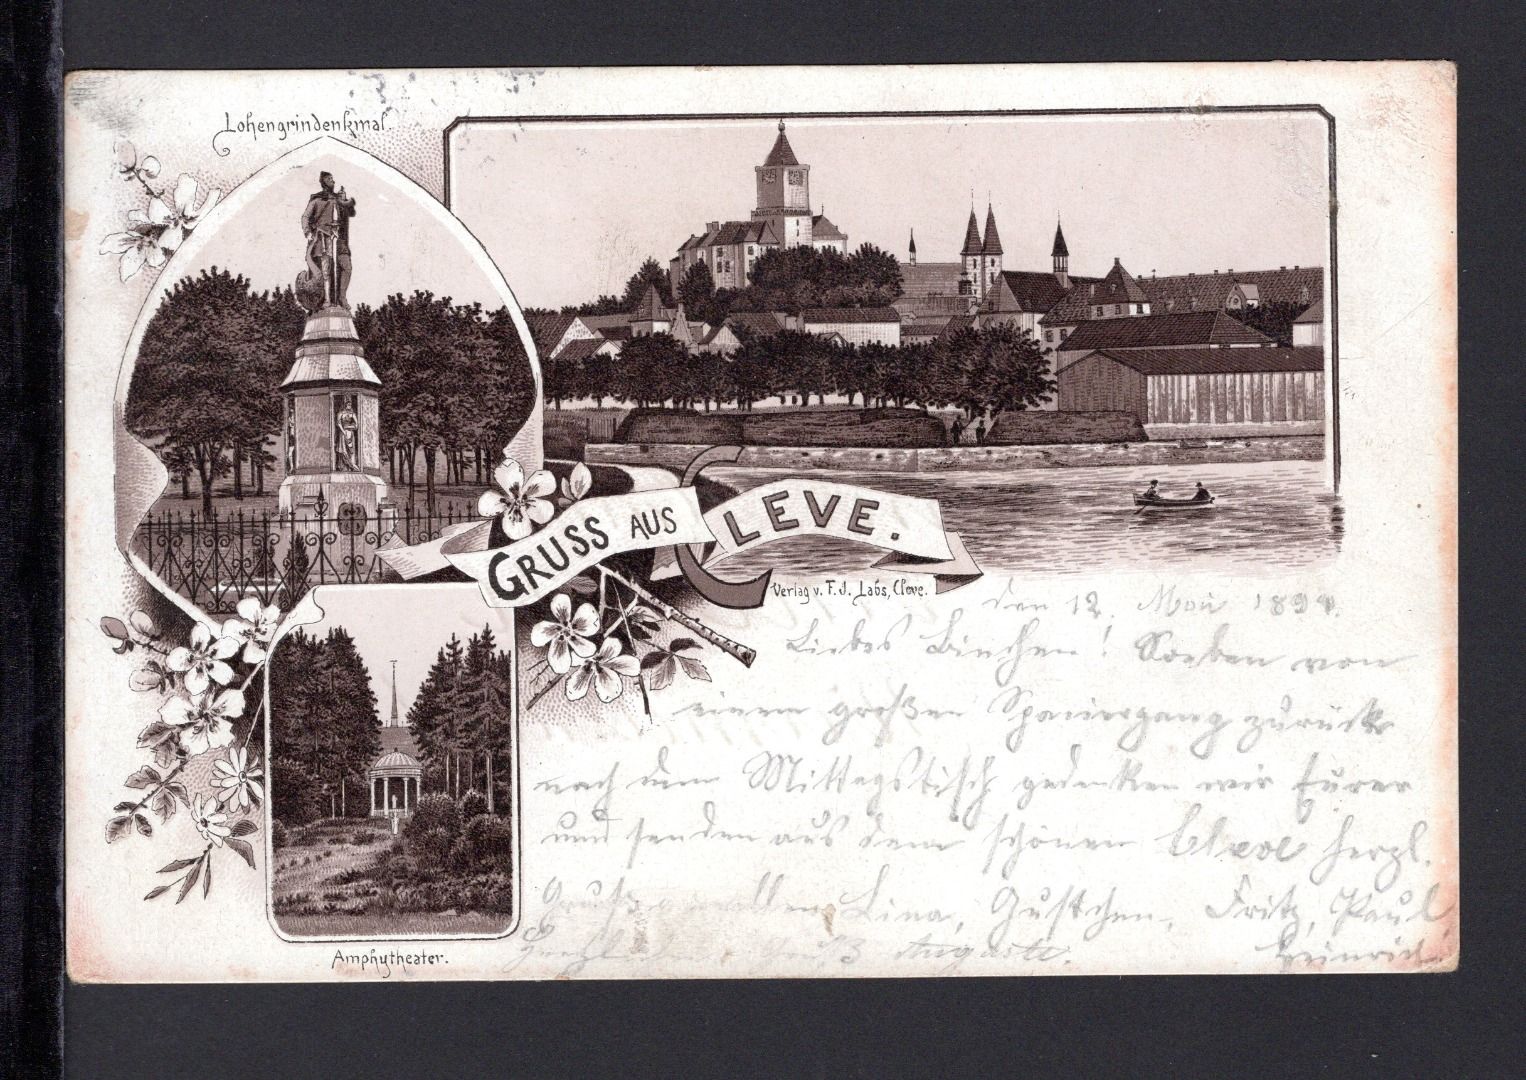 Lohengrindenkmal.
GRUSS AUS CLEVE.
Verlag v. F. J. Labs, Cleve.
Amphytheater.
den 12. Mai 189
Liebes Binchen! Soeben von
einem großen Spaziergang zurück
nach dem Mittagstisch gedenken wir Eurer
und senden aus dem schönen Cleve herzl.
Lina, Gustchen, Fritz, Paul
Heinrich.
Auguste.